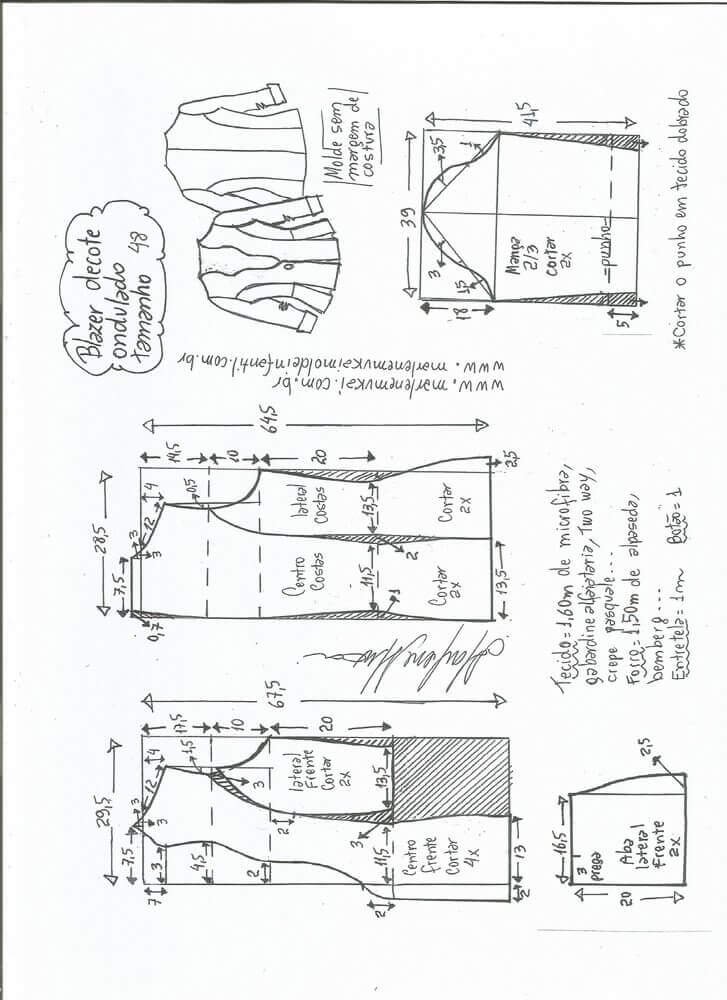 Blazer decote
ondulado
tamanho 48
Molde sem
margem de
costura
41,5
39
3,5
1
3
1,5
18
Manga
2/3
cortar
2x
=punho=
5
*Cortar o punho em tecido dobrado
www.marlenemukai.com.br
www.marlenemukaimoldeinfantil.com.br
64,5
19,5
10
20
28,5
7,5
4
12
3
3
0,5
0,7
Lateral
Costas
Centro
Costas
13,5
11,5
2
1
Cortar
2x
Cortar
2x
2,5
13,5
67,5
17,5
10
20
29,5
7,5
4
12
3
3
1,5
3
7
3
4,5
2
2
Lateral
Frente
Cortar
2x
13,5
11,5
3
2
Centro
frente
Cortar
4x
13
2
Tecido=1,60m de microfibra,
gabardine alfaiataria, Two way,
crepe pasquale....
Forro=1,50m de alpaseda,
bemberg....
Entretela=1m Botão=1
16,5
3
prega
Aba
lateral
frente
2x
20
2,5